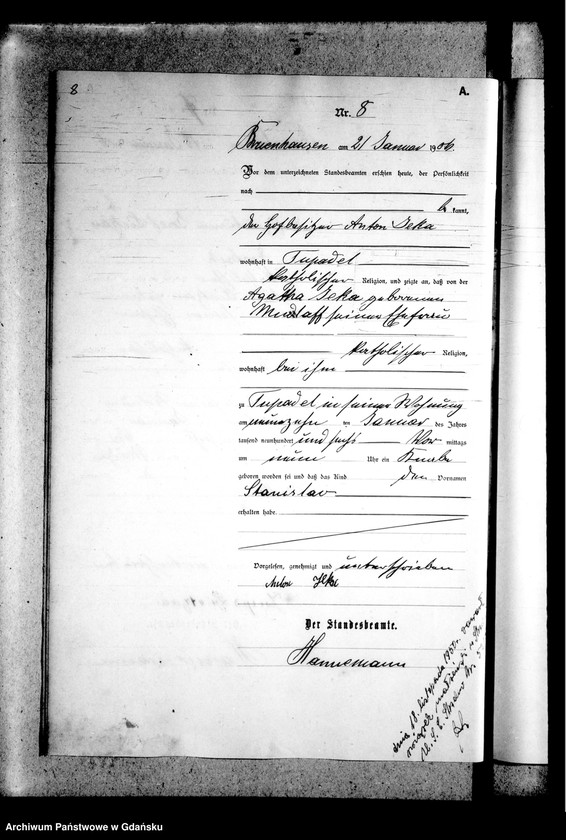 8
A.
Nr. 8
am 21 Januar 1906.
Vor dem unterzeichneten Standesbeamten erschien heute, der Persönlichkeit
nach
be kannt,
der Hofbesitzer Anton Jeka
wohnhaft in Tupadel
katholischer Religion, und zeigte an, daß von der
Agatha Jeka geborenen
seiner Ehefrau
katholischer Religion,
wohnhaft bei ihm
zu Tupadel in seiner Wohnung
am neunzehn ten Januar des Jahres
tausend neunhundert und sechs Vor mittags
um neun Uhr ein Knabe
geboren worden sei und daß das Kind den Vornamen
Stanislav
erhalten habe.
Vorgelesen, genehmigt und unterschrieben
Anton Jeka
Der Standesbeamte.
Hannemann
dnia 18. listopada 1935r. zawarł
związek małżeński
U. S. C. Nr. 5
Archiwum Państwowe w Gdańsku